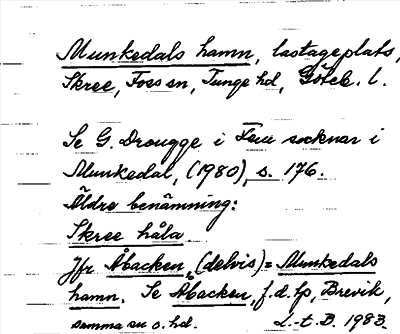 Munkedals hamn, lastageplats,
Skree, Foss sn, Tunge hd, Göteb. l.
Se G. Drougge i Fem socknar i
Munkedal, (1980), s. 176.
Äldre benämning:
Skree håla
Jfr Åbacken, (delvis) = Munkedals
hamn. Se Åbacken, f.d. lp, Brevik,
samma sn o. hd. L-t B. 1983.